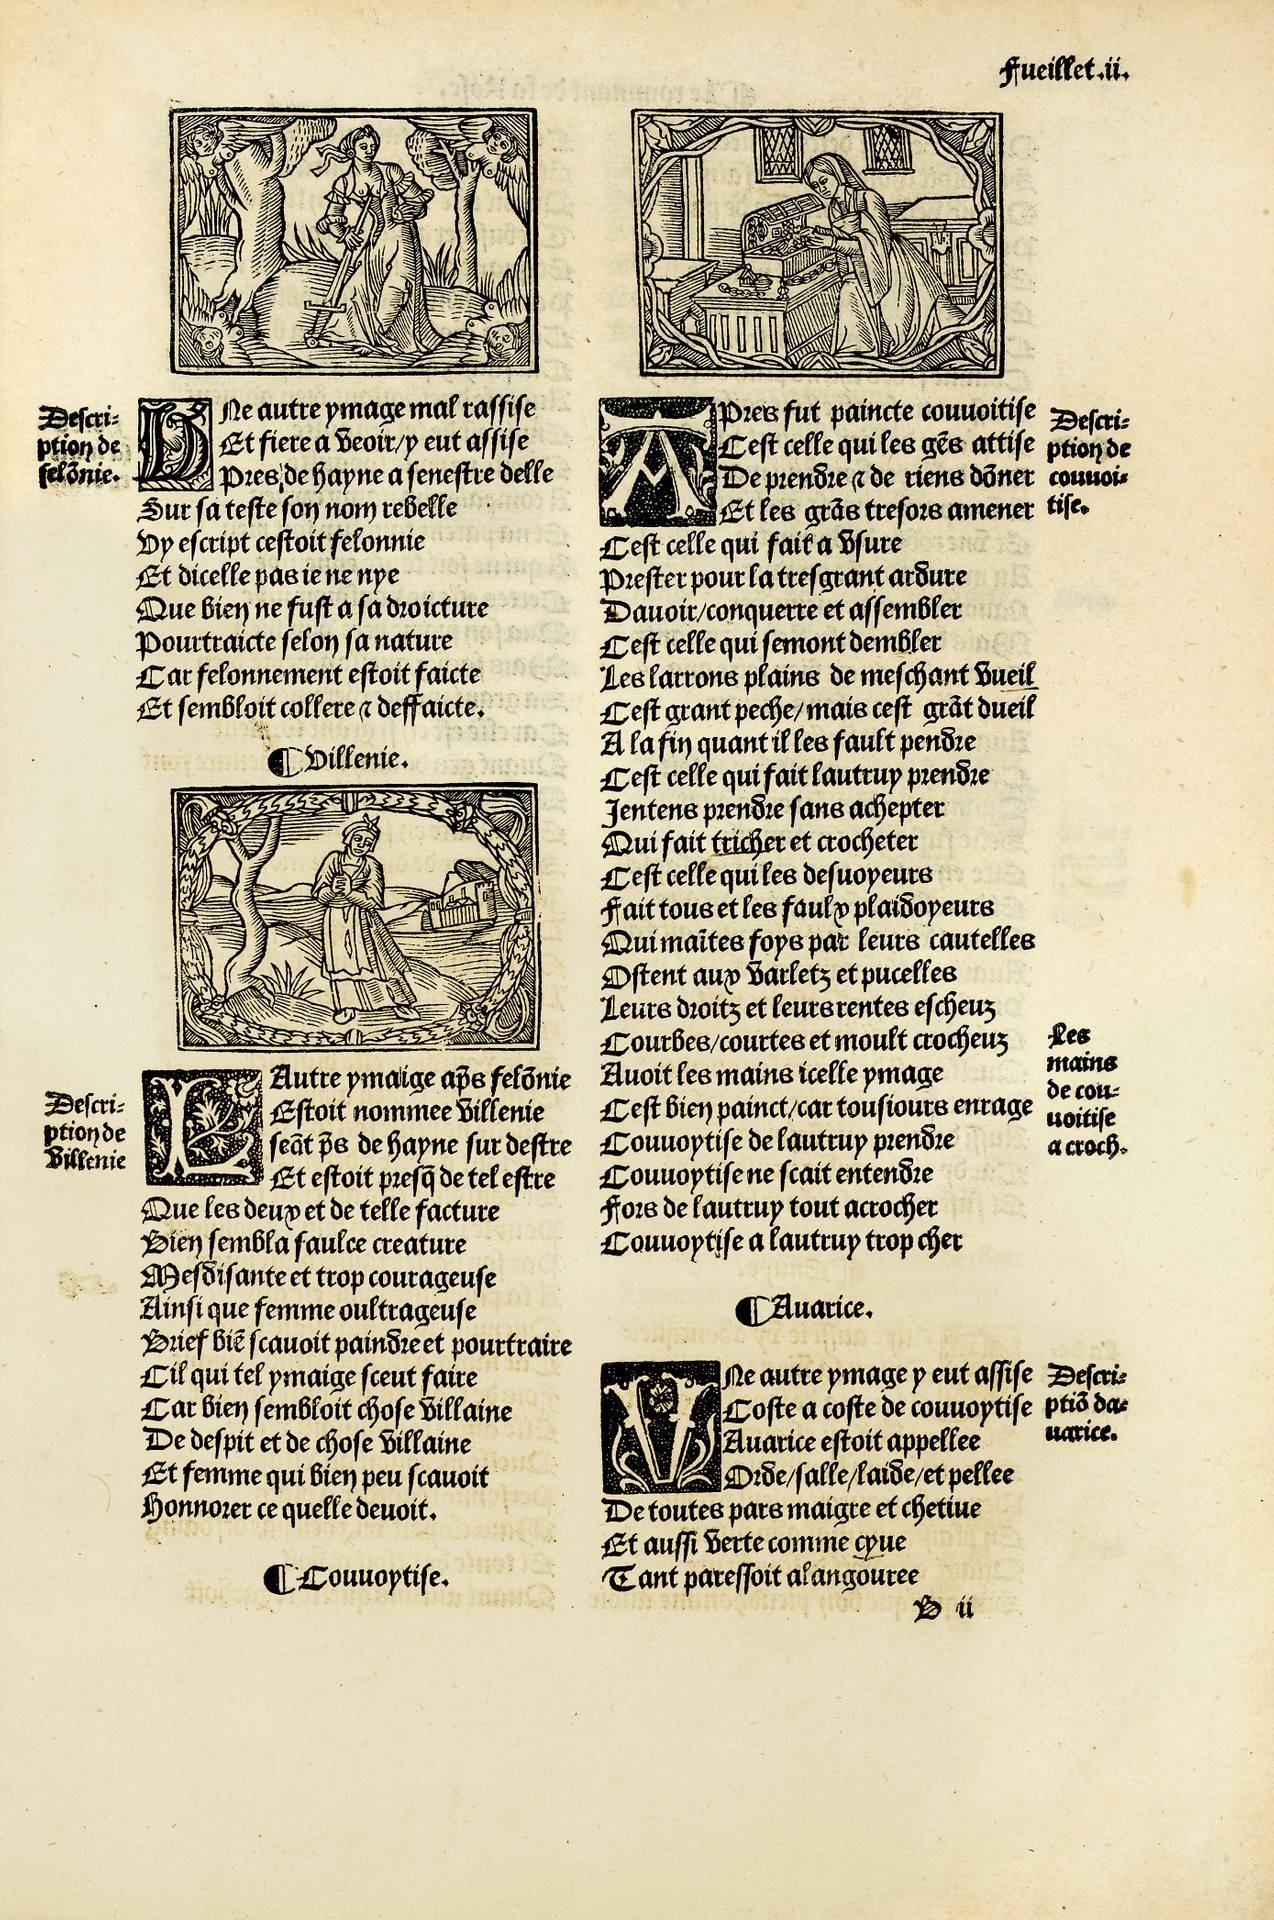 Fueillet.ii.
Descri-
ption de
felōnie.
VNe autre ymage mal rassise
Et fiere a veoir/y eut assise
Pres de hayne a senestre delle
Sur sa teste son nom rebelle
Vy escript cestoit felonnie
Et dicelle pas ie ne nye
Que bien ne fust a sa droicture
Pourtraicte selon sa nature
Car felonnement estoit faicte
Et sembloit collere ⁊ deffaicte.
¶Villenie.
Descri-
ption de
villenie
LAutre ymaige ap̄s felōnie
Estoit nommee villenie
seāt p̄s de hayne sur destre
Et estoit presq̄ de tel estre
Que les deux et de telle facture
Bien sembla faulce creature
Mesdisante et trop courageuse
Ainsi que femme oultrageuse
Brief biē scauoit paindre et pourtraire
Cil qui tel ymaige sceut faire
Car bien sembloit chose villaine
De despit et de chose villaine
Et femme qui bien peu scauoit
Honnorer ce quelle deuoit.
¶Couuoytise.
APres fut paincte couuoitise
Cest celle qui les gēs attise
De prendre ⁊ de riens dōner
Et les grās tresors amener
Cest celle qui fait a vsure
Prester pour la tresgrant ardure
Dauoir/conquerre et assembler
Cest celle qui semont dembler
Les larrons plains de meschant vueil
Cest grant peche/mais cest grāt dueil
A la fin quant il les fault pendre
Cest celle qui fait lautruy prendre
Jentens prendre sans achepter
Qui fait tricher et crocheter
Cest celle qui les desuoyeurs
Fait tous et les faulx plaidoyeurs
Qui maītes foys par leurs cautelles
Ostent aux varletz et pucelles
Leurs droitz et leurs rentes escheuz
Courbes/courtes et moult crocheuz
Auoit les mains icelle ymage
Cest bien painct/car tousiours enrage
Couuoytise de lautruy prendre
Couuoytise ne scait entendre
Fors de lautruy tout acrocher
Couuoytise a lautruy trop cher
Descri-
ption de
couuoi-
tise.
Les
mains
de cou-
uoitise
a croch.
¶Auarice.
VNe autre ymage y eut assise
Coste a coste de couuoytise
Auarice estoit appellee
Orde/salle/laide/et pellee
De toutes pars maigre et chetiue
Et aussi verte comme cyue
Tant paressoit alangouree
Descri-
ptiō da-
uarice.
B ii